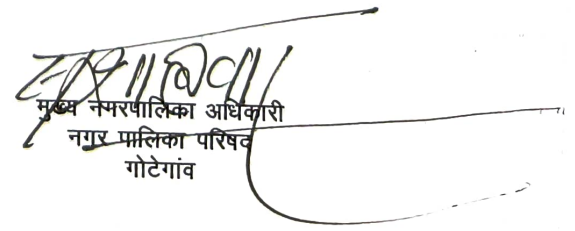 मुख्य नगरपालिका अधिकारी
नगर पालिका परिषद
गोटेगांव